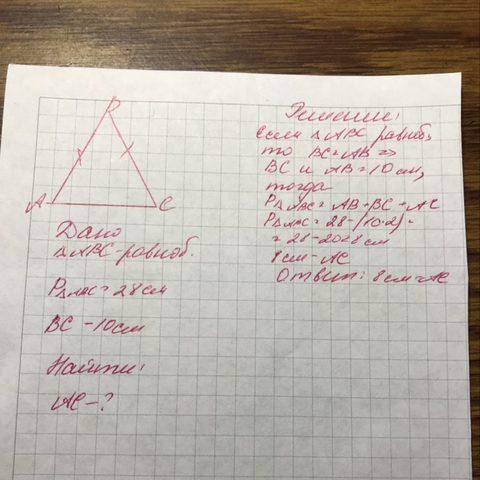 B
A
C
Дано
△ABC-равноб.
P△ABC=28см
BC-10см
Найти:
AC-?
Решение:
если △ABC равноб,
то BC=AB=>
BC и AB=10см,
тогда
P△ABC=AB+BC+AC
P△ABC=28-(10·2)=
=28-20=8см
8см-AC
Ответ: 8см=AC